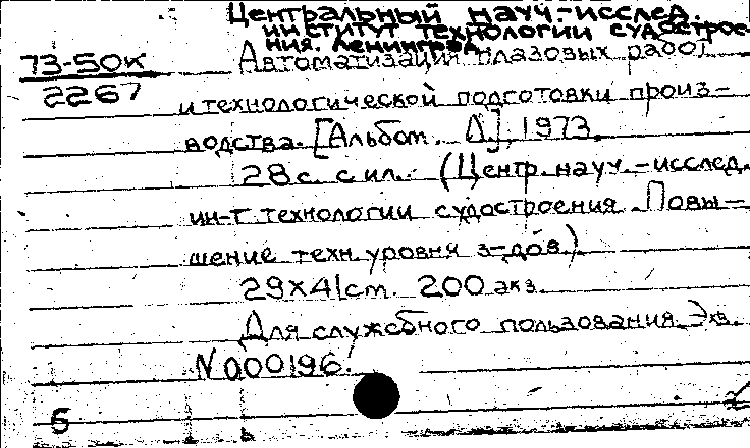 Центральный науч.-исслед.
институт технологии судострое
ния. Ленинград
73-50к
2267
Автоматизация плазовых работ
и технологической подготовки произ-
водства. [Альбом. Л], 1973.
28 с. с ил. (Центр. науч.-исслед.
ин-т технологии судостроения. Повы-
шение техн. уровня з-дов.)
29х41 см. 200 экз.
Для служебного пользования. Экз.
N 000196.
Б